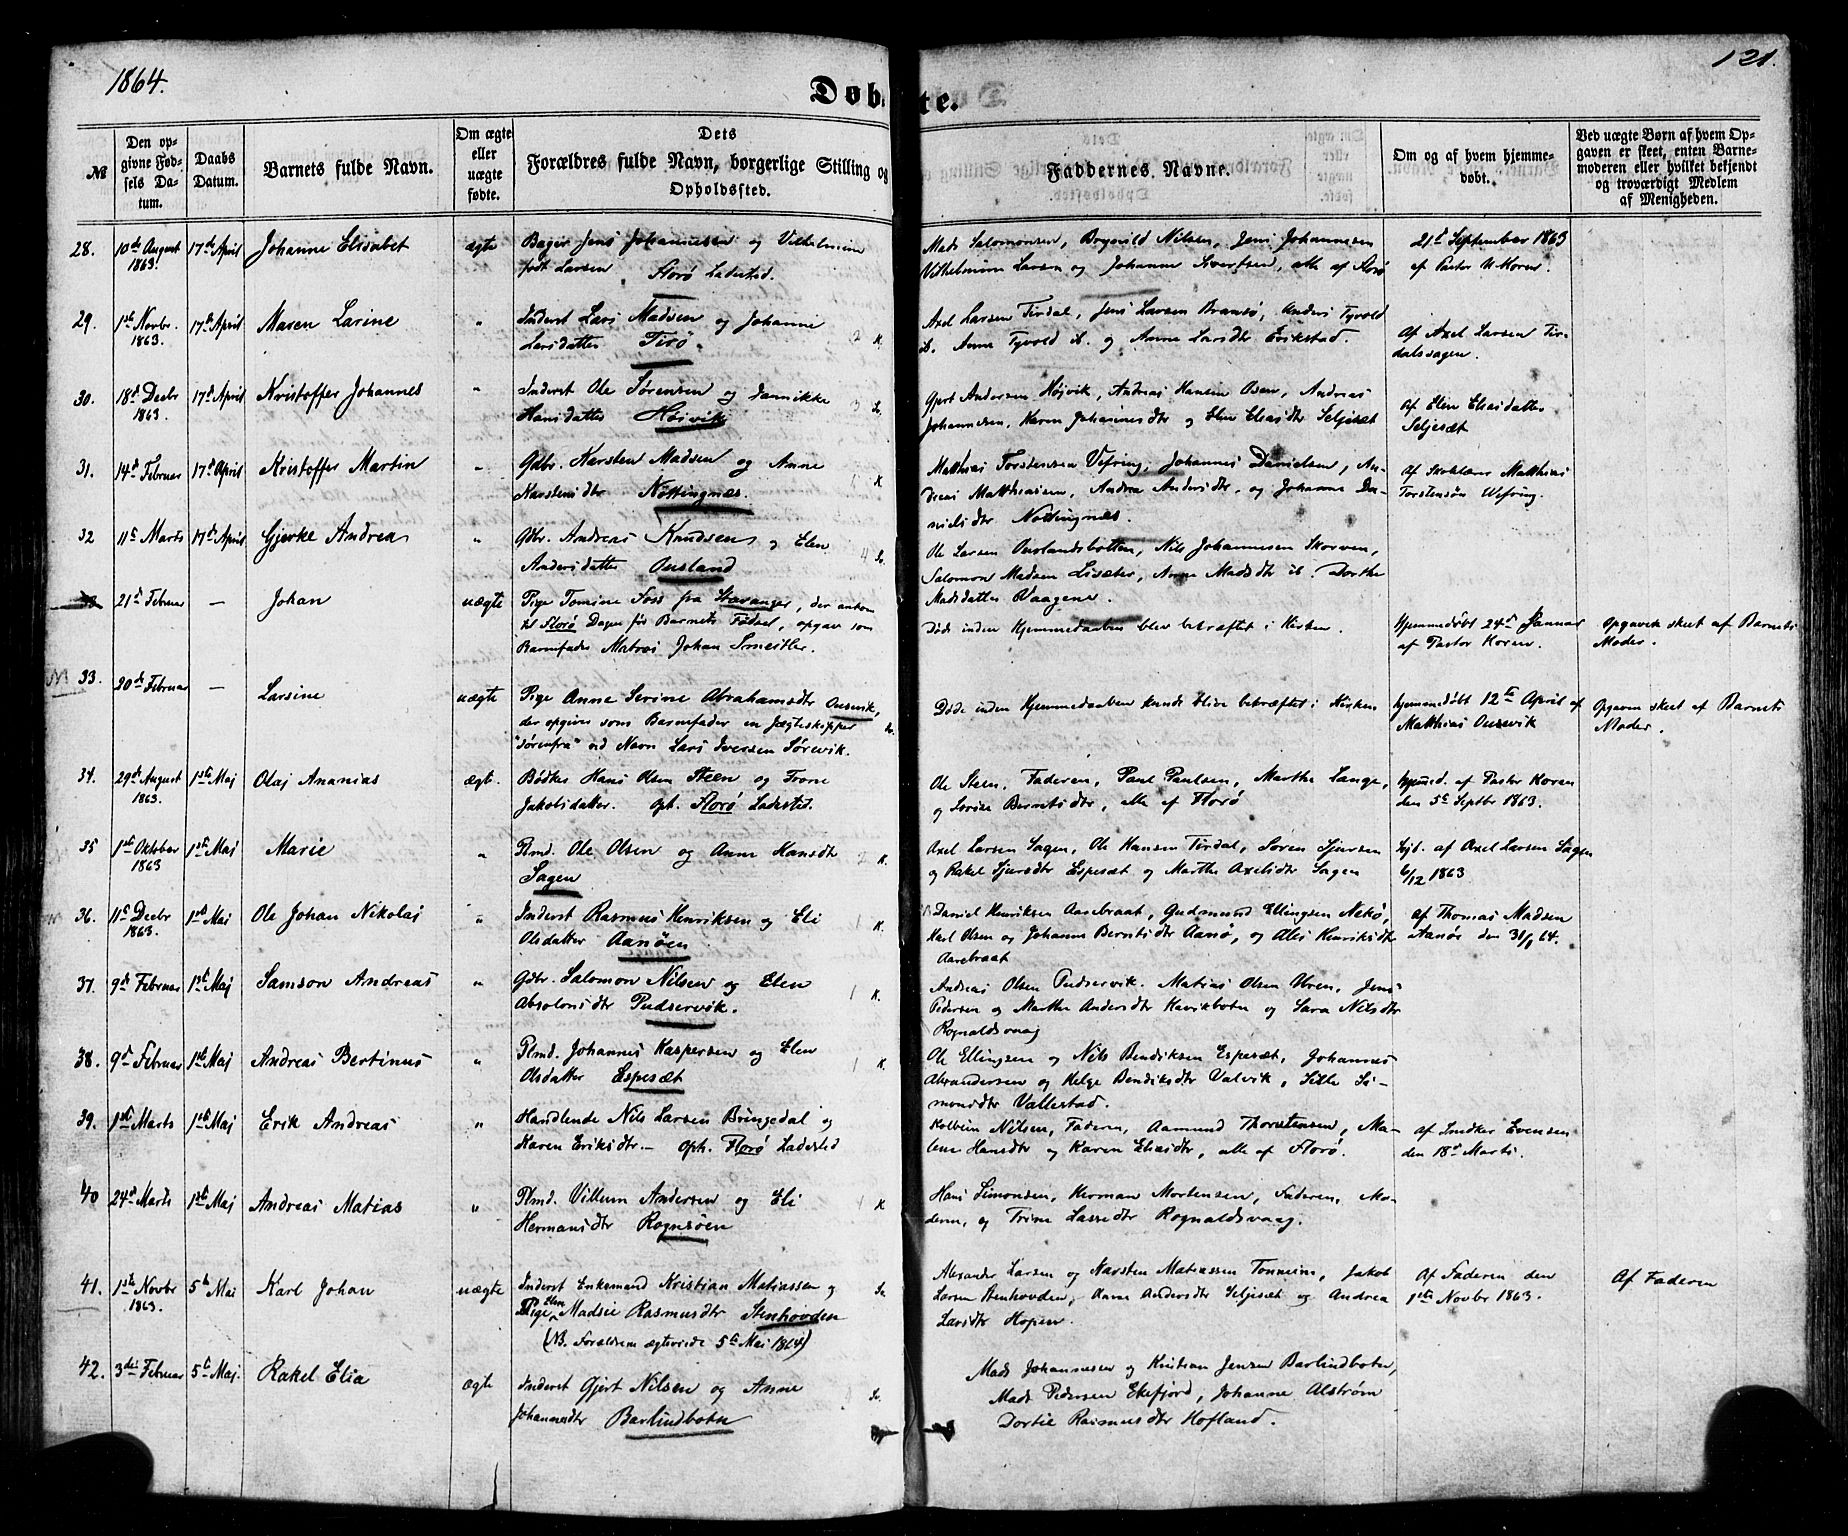 1864.
121.
Døbte.
№
Den opgivne Fødsels Datum.
Daabs Datum.
Barnets fulde Navn.
Om ægte eller uægte fødte.
Dets Forældres fulde Navn, borgerlige Stilling og Opholdssted.
Faddernes Navne.
Om og af hvem hjemmedøbt.
Ved uægte Børn af hvem Opgaven er skeet, enten Barnemoderen eller hvilket bekjendt og troværdigt Medlem af Menigheden.
28. 10de August 1863. 17de April Johanne Elisabet ægte
Bager Jens Johannessen og Vilhelmine
født Larsen Florø Ladested.
Mads Salomonsen, Bognild Nilsen, Jens Johannesen
Vilhelmine Larsen og Johanne Sivertsen, alle af Florø
21de September 1863
af Pastor Koren.
29. 1ste Novbr. 1863. 17de April Maren Larine "
Inderst Lars Madsen og Johanne
Larsdatter Tirø. K.
Axel Larsen Tirdal, Jens Larsen Bransø, Anders Tyvold
ib. Anne Tyvold ib. og Anne Larsdtr Erikstad.
Af Axel Larsen Tirdalssagen.
30. 18de Decbr 1863. 17de April Kristoffer Johannes "
Inderst Ole Sørensen og Jannikke
Hansdatter Høivik
Gjert Andersen Højvik, Andreas Hansen Osen, Andreas
Johannesen, Karen Johannesdtr og Elen Eliasdtr Seljesæt
Af Elen Eliasdatter
Seljesæt
31. 14de Februar 17de April Kristoffer Martin "
Gdbr. Karsten Madsen og Anne
Karstensdtr Nøttingnæs. K.
Matthias Torstensen Vefring, Johannes Danielsen, An-
dreas Matthiassen, Andrea Andersdtr, og Johanne Da-
nielsdtr Nøttingnæs.
Af Skolelærer Matthias
Torstensøn Wefring.
32 11te Marts 17de April Gjerke Andrea "
Gdbr. Andreas Knudsen og Elen
Andersdatter Ousland
Ole Larsen Ouslandsbotten, Nils Johannesen Skorven,
Salomon Madsen Lisæter, Anne Madsdtr ib. Dorthe
Madsdatter Vaagene.
21de Februar — Johan uægte
Pige Tomine Foss fra Stavanger, der ankom
til Florø Dagen før Barnets Fødsel, opgav som
Barnefader Matros Johan Smeitler.
Døde inden Hjemmedaaben blev bekræftet i Kirken.
Hjemmedøbt 24de Januar
af Pastor Koren.
Opgaven skeet af Barnets
Moder.
33. 20de Februar — Larsine uægte
Pige Anne Serine Abrahamsdtr Ousevik,
der opgiver som Barnefader en Jægteskipper
"Sørenfra" ved Navn Lars Iversen Sørevik.
Døde inden Hjemmedaaben kunde blive bekræftet i Kirken
Hjemmedøbt 12te April af
Matthias Ousevik
Opgaven skeet af Barnets
Moder.
34. 29de August 1863. 1ste Maj Olaj Ananias ægt.
Bødker Hans Olsen Steen og Trone
Jakobsdatter. oph. Florø Ladested.
Ole Steen, Faderen, Paul Paulsen, Marthe Lange,
og Sovise Berntsdtr, alle af Florø
hjemmed. af Pastor Koren
den 5te Septbr 1863.
35 1ste Oktober 1863 1ste Maj Marie "
Plmd. Ole Olsen og Anne Hansdtr
Sagen K.
Axel Larsen Sagen, Ole Hansen Tirdal, Søren Sjursen
og Rakel Sjursdtr Espesæt og Marthe Axelsdtr Sagen
Hjd. af Axel Larsen Sagen
6/12 1863
36. 11te Decbr 1863. 1ste Mai Ole Johan Nikolaj "
Inderst Rasmus Henriksen og Eli
Olsdatter Aanøen 1 K.
Daniel Henriksen Aarebraat, Gudmund Ellingsen Nekø,
Karl Olsen og Johanne Berntsdtr Aanø, og Ales Henriksdtr
Aarebraat
Af Thomas Madsen
Aanøe den 31/1 64.
37. 9de Februar 1ste Maj Samson Andreas "
Gdbr. Salomon Nilsen og Elen
Absolonsdtr Pudservik. 1 K.
Andreas Olsen Pudservik. Matias Olsen Uren, Jens
Pedersen og Marthe Andersdtr Kavikbotn og Sara Nilsdtr
Rognaldsvaag
38. 9de Februar 1ste Maj Andreas Bertinus "
Plmd. Johannes Kaspersen og Elen
Olsdatter Espesæt 1 K.
Ole Ellingsen og Nils Bendiksen Espesæt, Johannes
Alexandersen og Helge Bendiksdtr Valvik, Sille Si-
monsdtr Vallestad.
39. 1ste Marts 1ste Maj Erik Andreas "
Handlende Nils Larsen Bringedal og
Karen Eriksdtr — oph. Florø Ladested
Kolbein Nilsen, Faderen, Aamund Thorstensen, Ma-
lene Hansdtr og Karen Eliasdtr, alle af Florø.
af Snedker Evensen
den 18de Marts.
40 24de Marts 1ste Maj Andreas Matias "
Plmd. Villum Andersen og Eli
Hermansdtr Rognsøen 1 K
Hans Simonsen, Herman Mortensen, Faderen, Mo-
deren, og Trine Lassedtr Rognaldsvaag.
41. 1ste Novbr 1863. 5te Mai Karl Johan uægte
Inderst Enkemand Kristian Matiassen og
Pige Elen Madsie Rasmusdtr Stenhovden
(NB. Forældrene ægteviede 5te Mai 1864)
Alexander Larsen og Karsten Matiassen Tonheim, Jakob
Larsen Stenhovden, Anne Andersdtr Seljesæt og Andrea
Larsdtr Hopen.
Af Faderen den
1ste Novbr 1863.
Af Faderen
42. 3die Februar 5te Maj. Rakel Elia ægte
Inderst Gjert Nilsen og Anne
Johannesdtr Barlindbotn
Mads Johannesen og Kristian Jensen Barlindbotn,
Mads Pedersen Ekefjord, Johanne Alstrøm
Dortie Rasmusdtr Hofland.